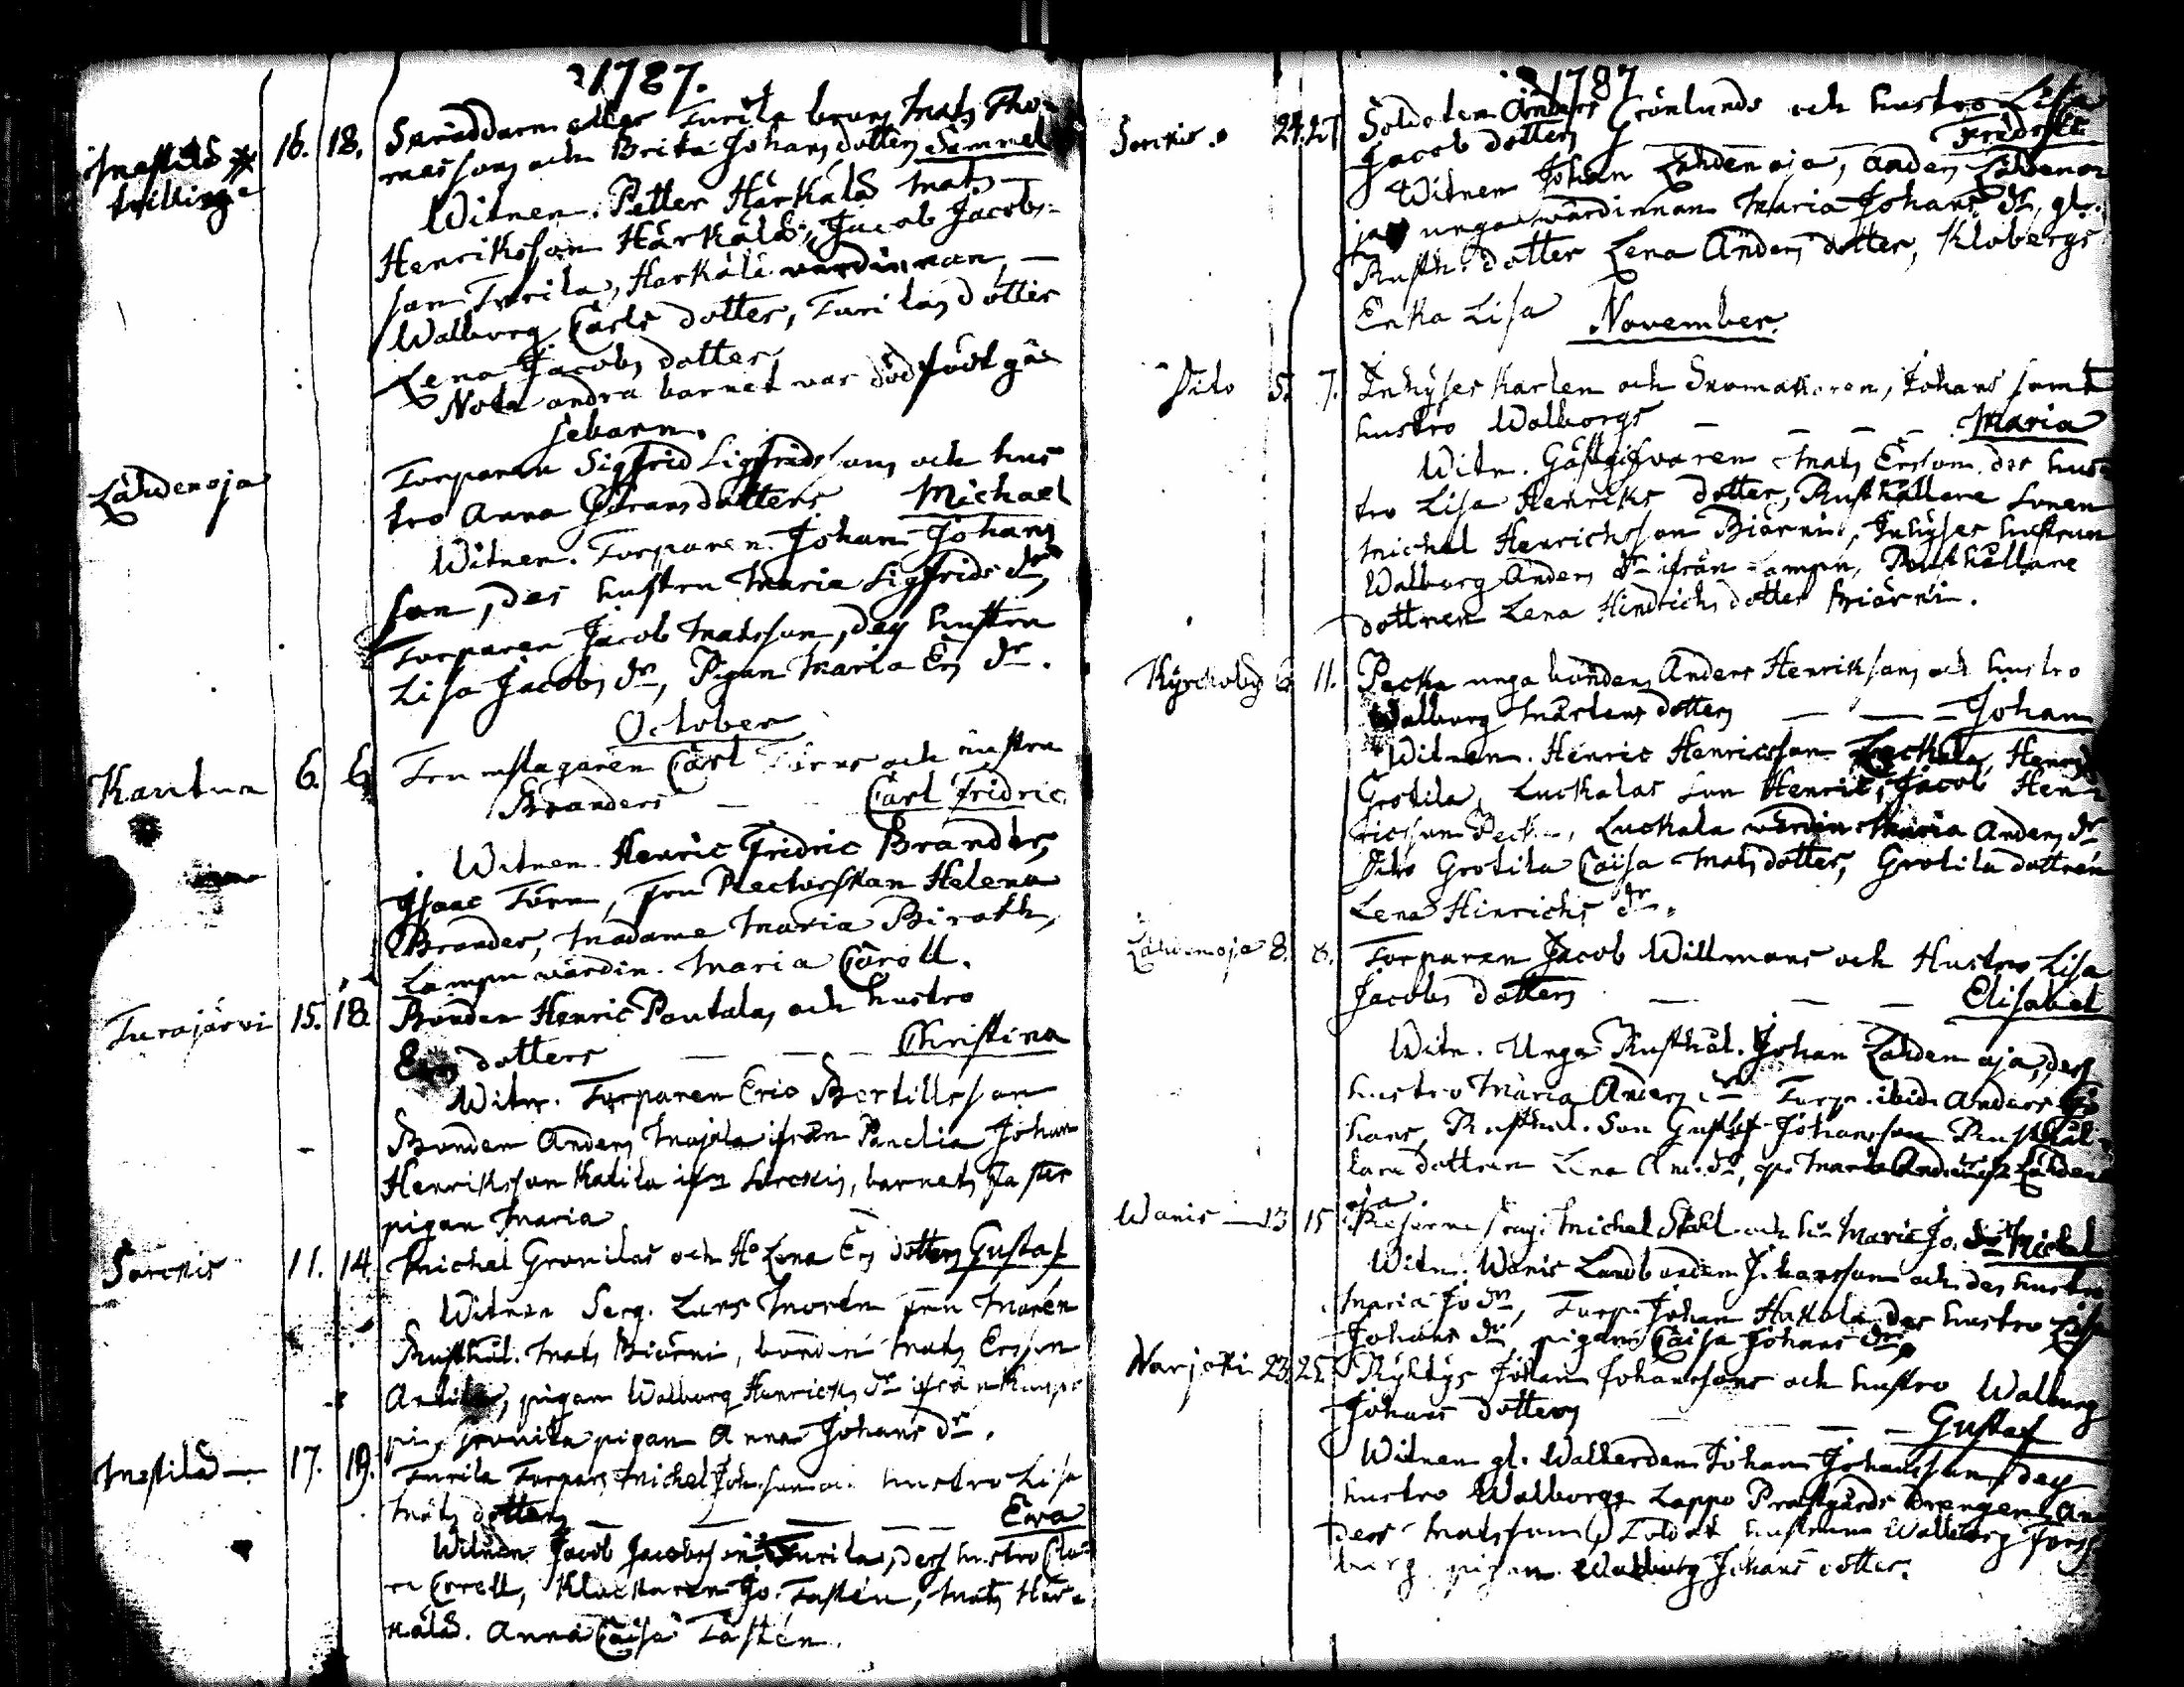 1787.
Mastila 16. 18. Skräddaren eller Turila Matz Tho-
tvillinge massons och Brita Johans dotters Simmel
Witnen. Petter Härkälä Mats
Henriksson Härkälä, Jacob Jacobs-
son Turila, Härkälä värdinnan
Walborg Carls dotter, Turilas dotter
Lena Jacobs dotter
Nota andra barnet var dödfödt gås
sebarn.
Lähdenoja Torparen Sigfrid Sigfridssons och hus
tro Anna Göransdotters Michael
Witnen. Torparen Johan Johans
son, des hustru Maria Sigfrids dr
Torparen Jacob Matsson, des hustru
Lisa Jacobs dr, Pigan Maria Ers dr.
October
Kautua 6. 6. Carl Törns och hustru
Branders — Carl Fridric
Witnen. Henric Fridric Brander,
Isaac Törn, Fru Rectorskan Helena
Brander, Madame Maria Birath,
Lampu värdin. Maria Caroll.
Turajärvi 15. 18. Bonden Henric Pautalas och hustro
Ers dotters — — — Christina
Witn. Torparen Eric Bertillsson
Bonden Anders Majala ifrån Panelia Johan
Henriksson Katila ifrn Sorckis, barnets faster
pigan Maria
Sorckis 11. 14. Michel Gronilas och Ho Lena Ers dotters Gustaf
Witnen Serg. Lars Morén fru Morén
Rusthål. Mats Biörni, bonden Mats Ersson
Anttila, pigan Walborg Henricks dr ifrån
pigan Anna Johans dr.
Mastila — 17. 19. Turila Torpare Michel hustro Lisa
Mats dotters — — — — Eva
Witnen Jacob Jacobsson Turila, dess hustro Cla-
ra Corell, Klockaren Jo. Fastén, Mats Här-
kälä. Anna Caisa Fastén.
1787
Sorckis. 24. 27 Soldaten Anders Grönlunds och hustro Lisa
Jacob dotters Fridric
Witnen Johan Lähdenoja, Anders Lähdeno
ja unga värdinnan Maria Johans dr, gl.
Rusth. dotter Lena Anders dotter, Klobergs
Enka Lisa
November
Dito 5. 7. Inhyses Karlen och Skomakaren, Johans samt
hustro Walborgs — — — Maria
Witn. Gästgifvaren Mats Ersson, des hus-
tro Lisa Henriks dotter, Rusthållare sonen
Michel Henrichsson Biörni, Inhyses hustrun
Walborg Anders dr ifrån Rusthållare
dottren Lena Hindrichs dotter Biörni.
Kyrckoby 6 11. Pecka unga bondens Anders Henrikssons och hustro
Walborg Mårtens dotters — — Johan
Witnen. Henric Henricsson Luckala, Henric
Grotila, Luckalas son Henric, Jacob Hen-
ricsson Pecka, Luckala värdin Maria Anders dr
Dito Grotila Caisa Mats dotter, Grotila dottren
Lena Hinrichs dr.
Lähdenoja 8. 8. Torparen Jacob Willmans och Hustro Lisa
Jacobs dotters — — — Elisabet
Witn. Unga Rusthål. Johan Lähdenoja, dess
hustro Maria Anders dr Torp. ibid. Anders
hans, Rusthål. Son Gustaf Johansson Rusthål-
lare dottren Lena
oja.
Wanis — 13 15 Michel Ståhl och hu Maria Jo. dr Michel
Witn. Wanis Landbonden Johansson och des hustro
Maria Jo dr, Torp. Johan Hakala des hustro Lisa
Johans dr pigan Caisa Johans dr.
Warjoki 23. 25. Johan Johanssons och hustro Walborg
Johans dotters — — — Gustaf
Witnen gl. Johan Johansson, des
hustro Walborg, Lappo Prästgårds Drengen An
ders Matsson, Soldat hustrun Walborg Forss
berg pigan Walborg Johans dotter.